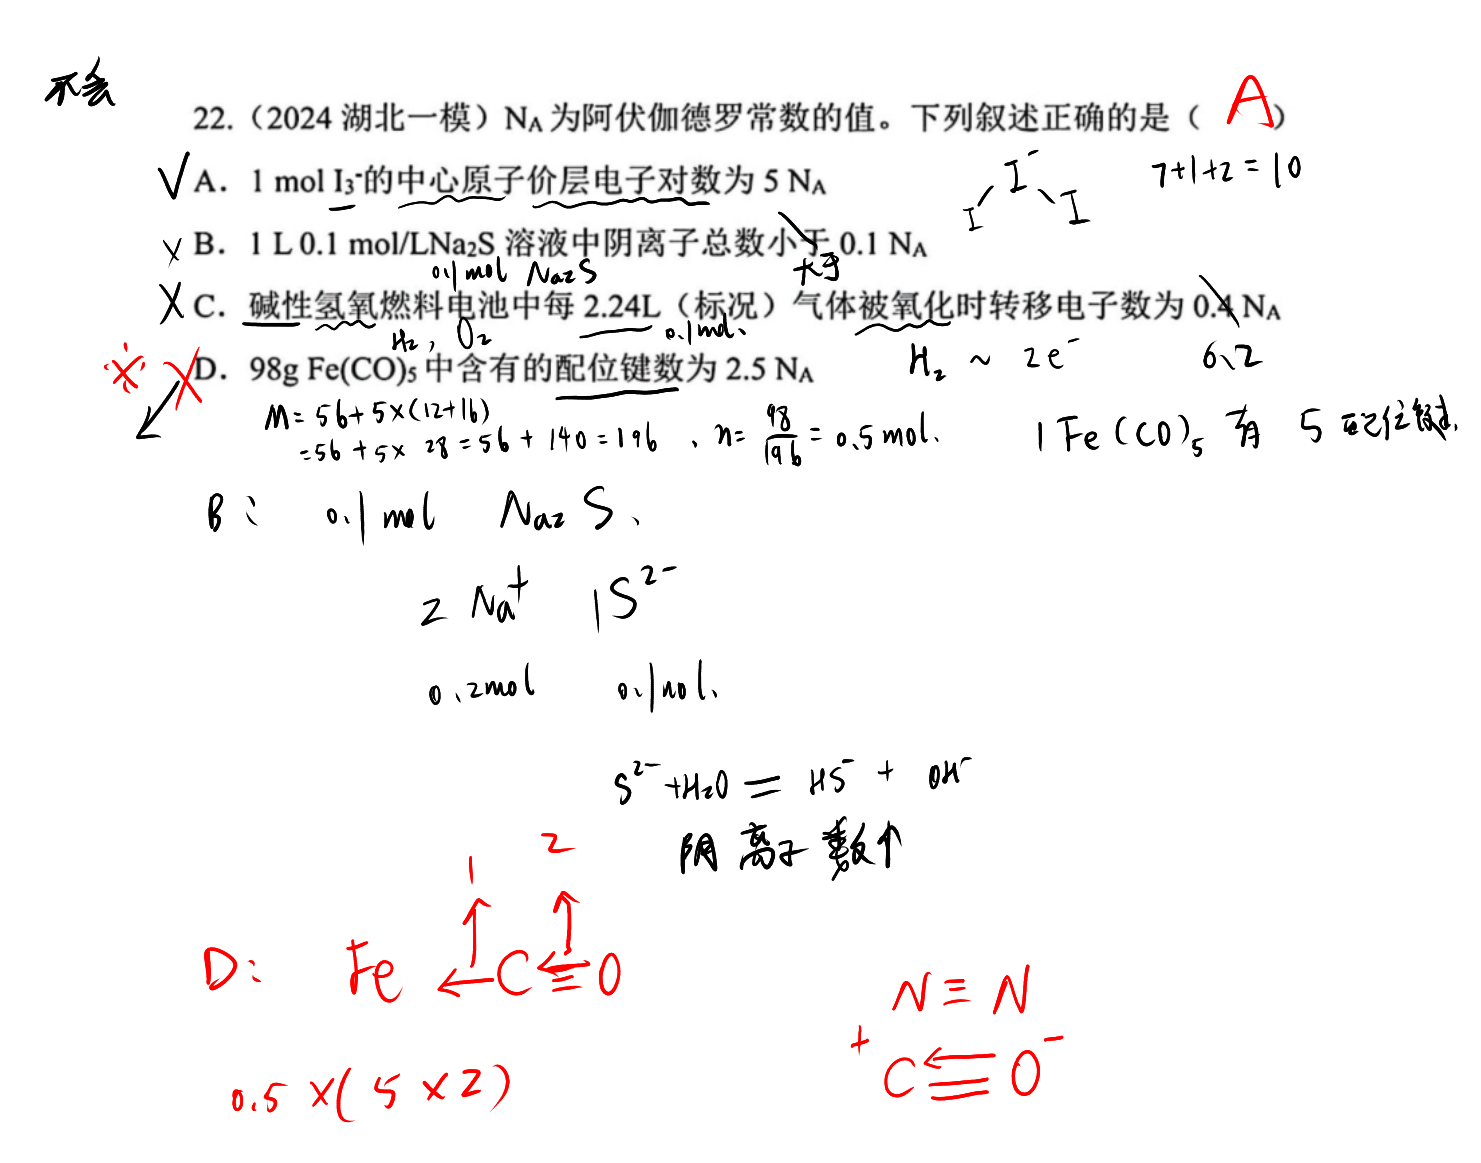 不会
22.（2024 湖北一模）NA 为阿伏伽德罗常数的值。下列叙述正确的是（ A ）
√ A．1 mol I₃⁻的中心原子价层电子对数为 5 NA
I I⁻ I
7+1+2=10
× B．1 L 0.1 mol/LNa₂S 溶液中阴离子总数小于 0.1 NA
0.1mol Na₂S
大于
× C．碱性氢氧燃料电池中每 2.24L（标况）气体被氧化时转移电子数为 0.4 NA
H₂, O₂
0.1mol.
H₂ ~ 2e⁻
0.2
× D．98g Fe(CO)₅ 中含有的配位键数为 2.5 NA
M=56+5×(12+16)
=56+5×28=56+140=196、n=98/196=0.5mol.
1 Fe(CO)₅ 有 5 配位键.
B: 0.1mol Na₂S、
2 Na⁺ 1S²⁻
0.2mol 0.1mol.
S²⁻+H₂O = HS⁻ + OH⁻
阴离子数↑
1 2
D: Fe ← C ≡ O
N≡N
+ C≡O⁻
0.5×(5×2)